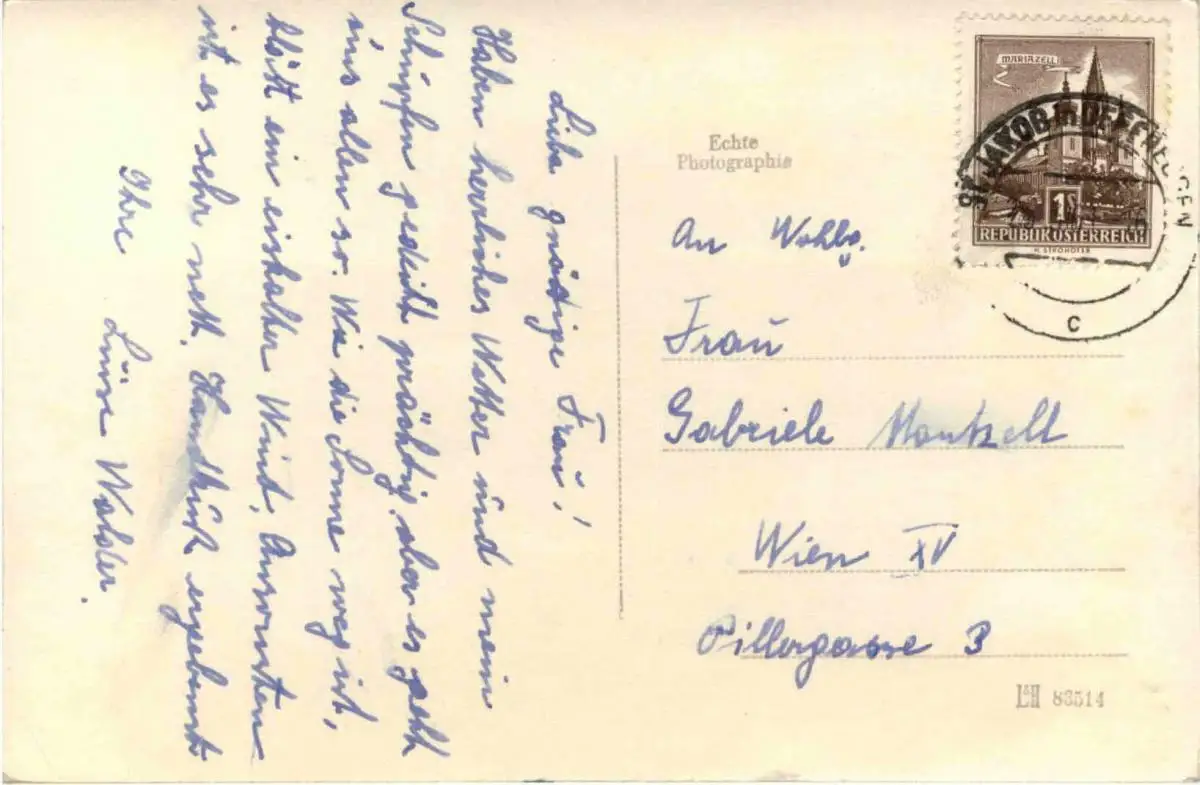 Liebe gnädige Frau!
Haben herrliches Wetter und mein
Schnupfen gedeiht prächtig, aber es geht
uns allen so. Wie die Sonne weg ist,
bläst ein eiskalter Wind. Ansonsten
ist es sehr nett. Handkuß ergebenst
Ihre Luise
Echte
Photographie
An Wohlg.
Frau
Gabriele
Wien XV
Pillergasse 3
L&H 83514
MARIAZELL
1S
REPUBLIK ÖSTERREICH
ST. JAKOB in DEFEREGGEN
C